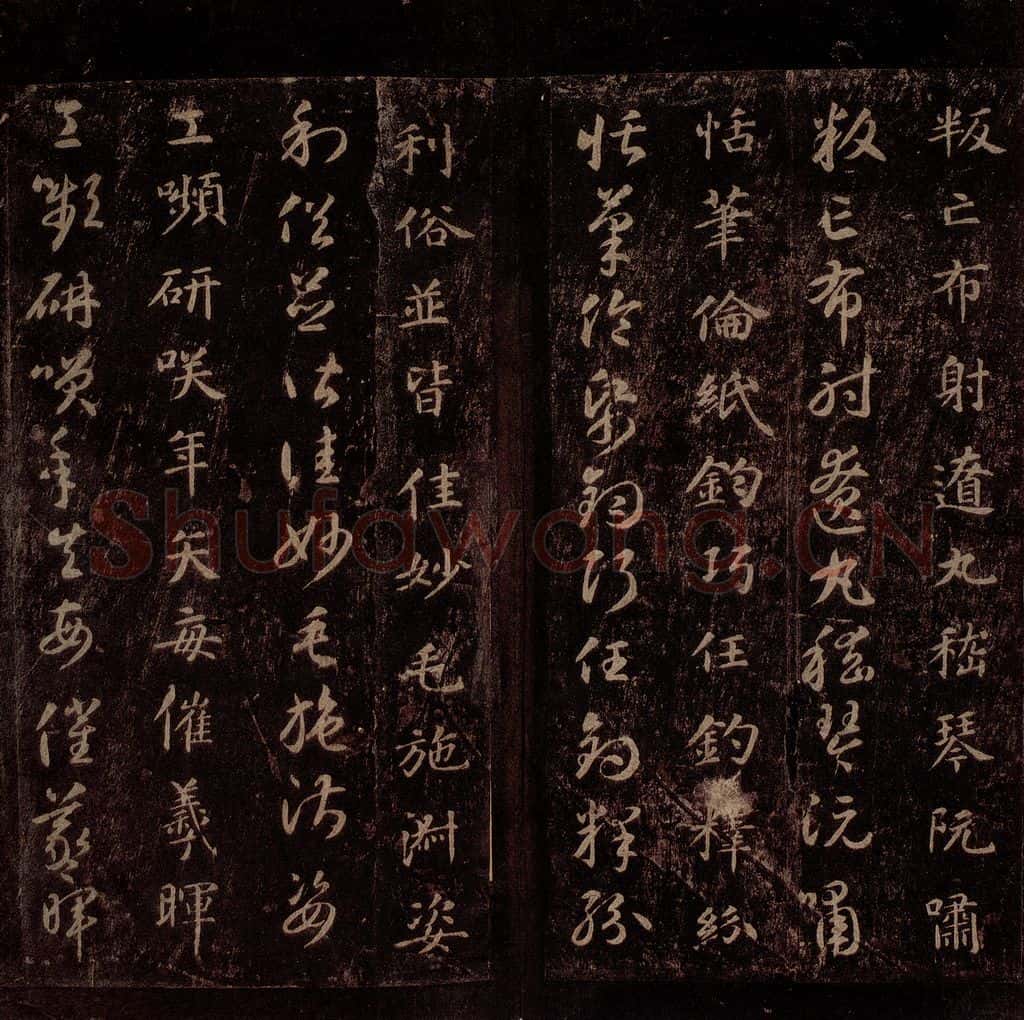 叛亡布射遼丸嵇琴阮嘯
叛亡布射遼丸嵇琴阮嘯
恬筆倫紙鈞巧任釣釋紛
恬筆倫紙鈞巧任釣釋紛
利俗並皆佳妙毛施淑姿
利俗並皆佳妙毛施淑姿
工嚬研咲年矢每催羲暉
工嚬研咲年矢每催羲暉
Shufawang.CN